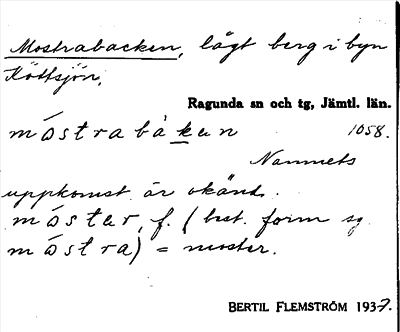 Mostrabacken, lågt berg i byn
Köttsjön.
Ragunda sn och tg, Jämtl. län.
móstrabàken 1058.
Namnets
uppkomst är okänd.
móster, f. (best. form sg.
móstra) = moster.
BERTIL FLEMSTRÖM 1937.